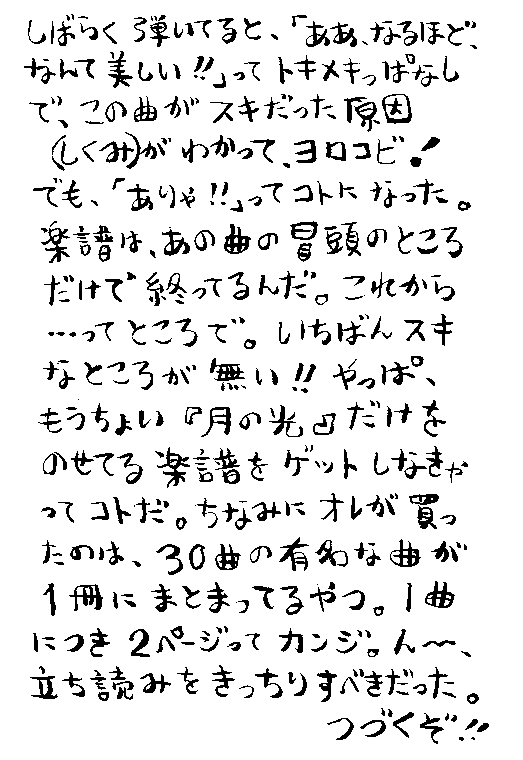 しばらく弾いてると、「ああ、なるほど、
なんて美しい!!」ってトキメキっぱなし
で、この曲がスキだった原因
(しくみ)がわかって、ヨロコビ!
でも、「ありゃ!!」ってコトになった。
楽譜は、あの曲の冒頭のところ
だけで終ってるんだ。これから
…ってところで。いちばんスキ
なところが無い!!やっぱ、
もうちょい『月の光』だけを
のせてる楽譜をゲットしなきゃ
ってコトだ。ちなみにオレが買っ
たのは、30曲の有名な曲が
1冊にまとまってるやつ。1曲
につき2ページってカンジ。ん〜、
立ち読みをきっちりすべきだった。
つづくぞ!!